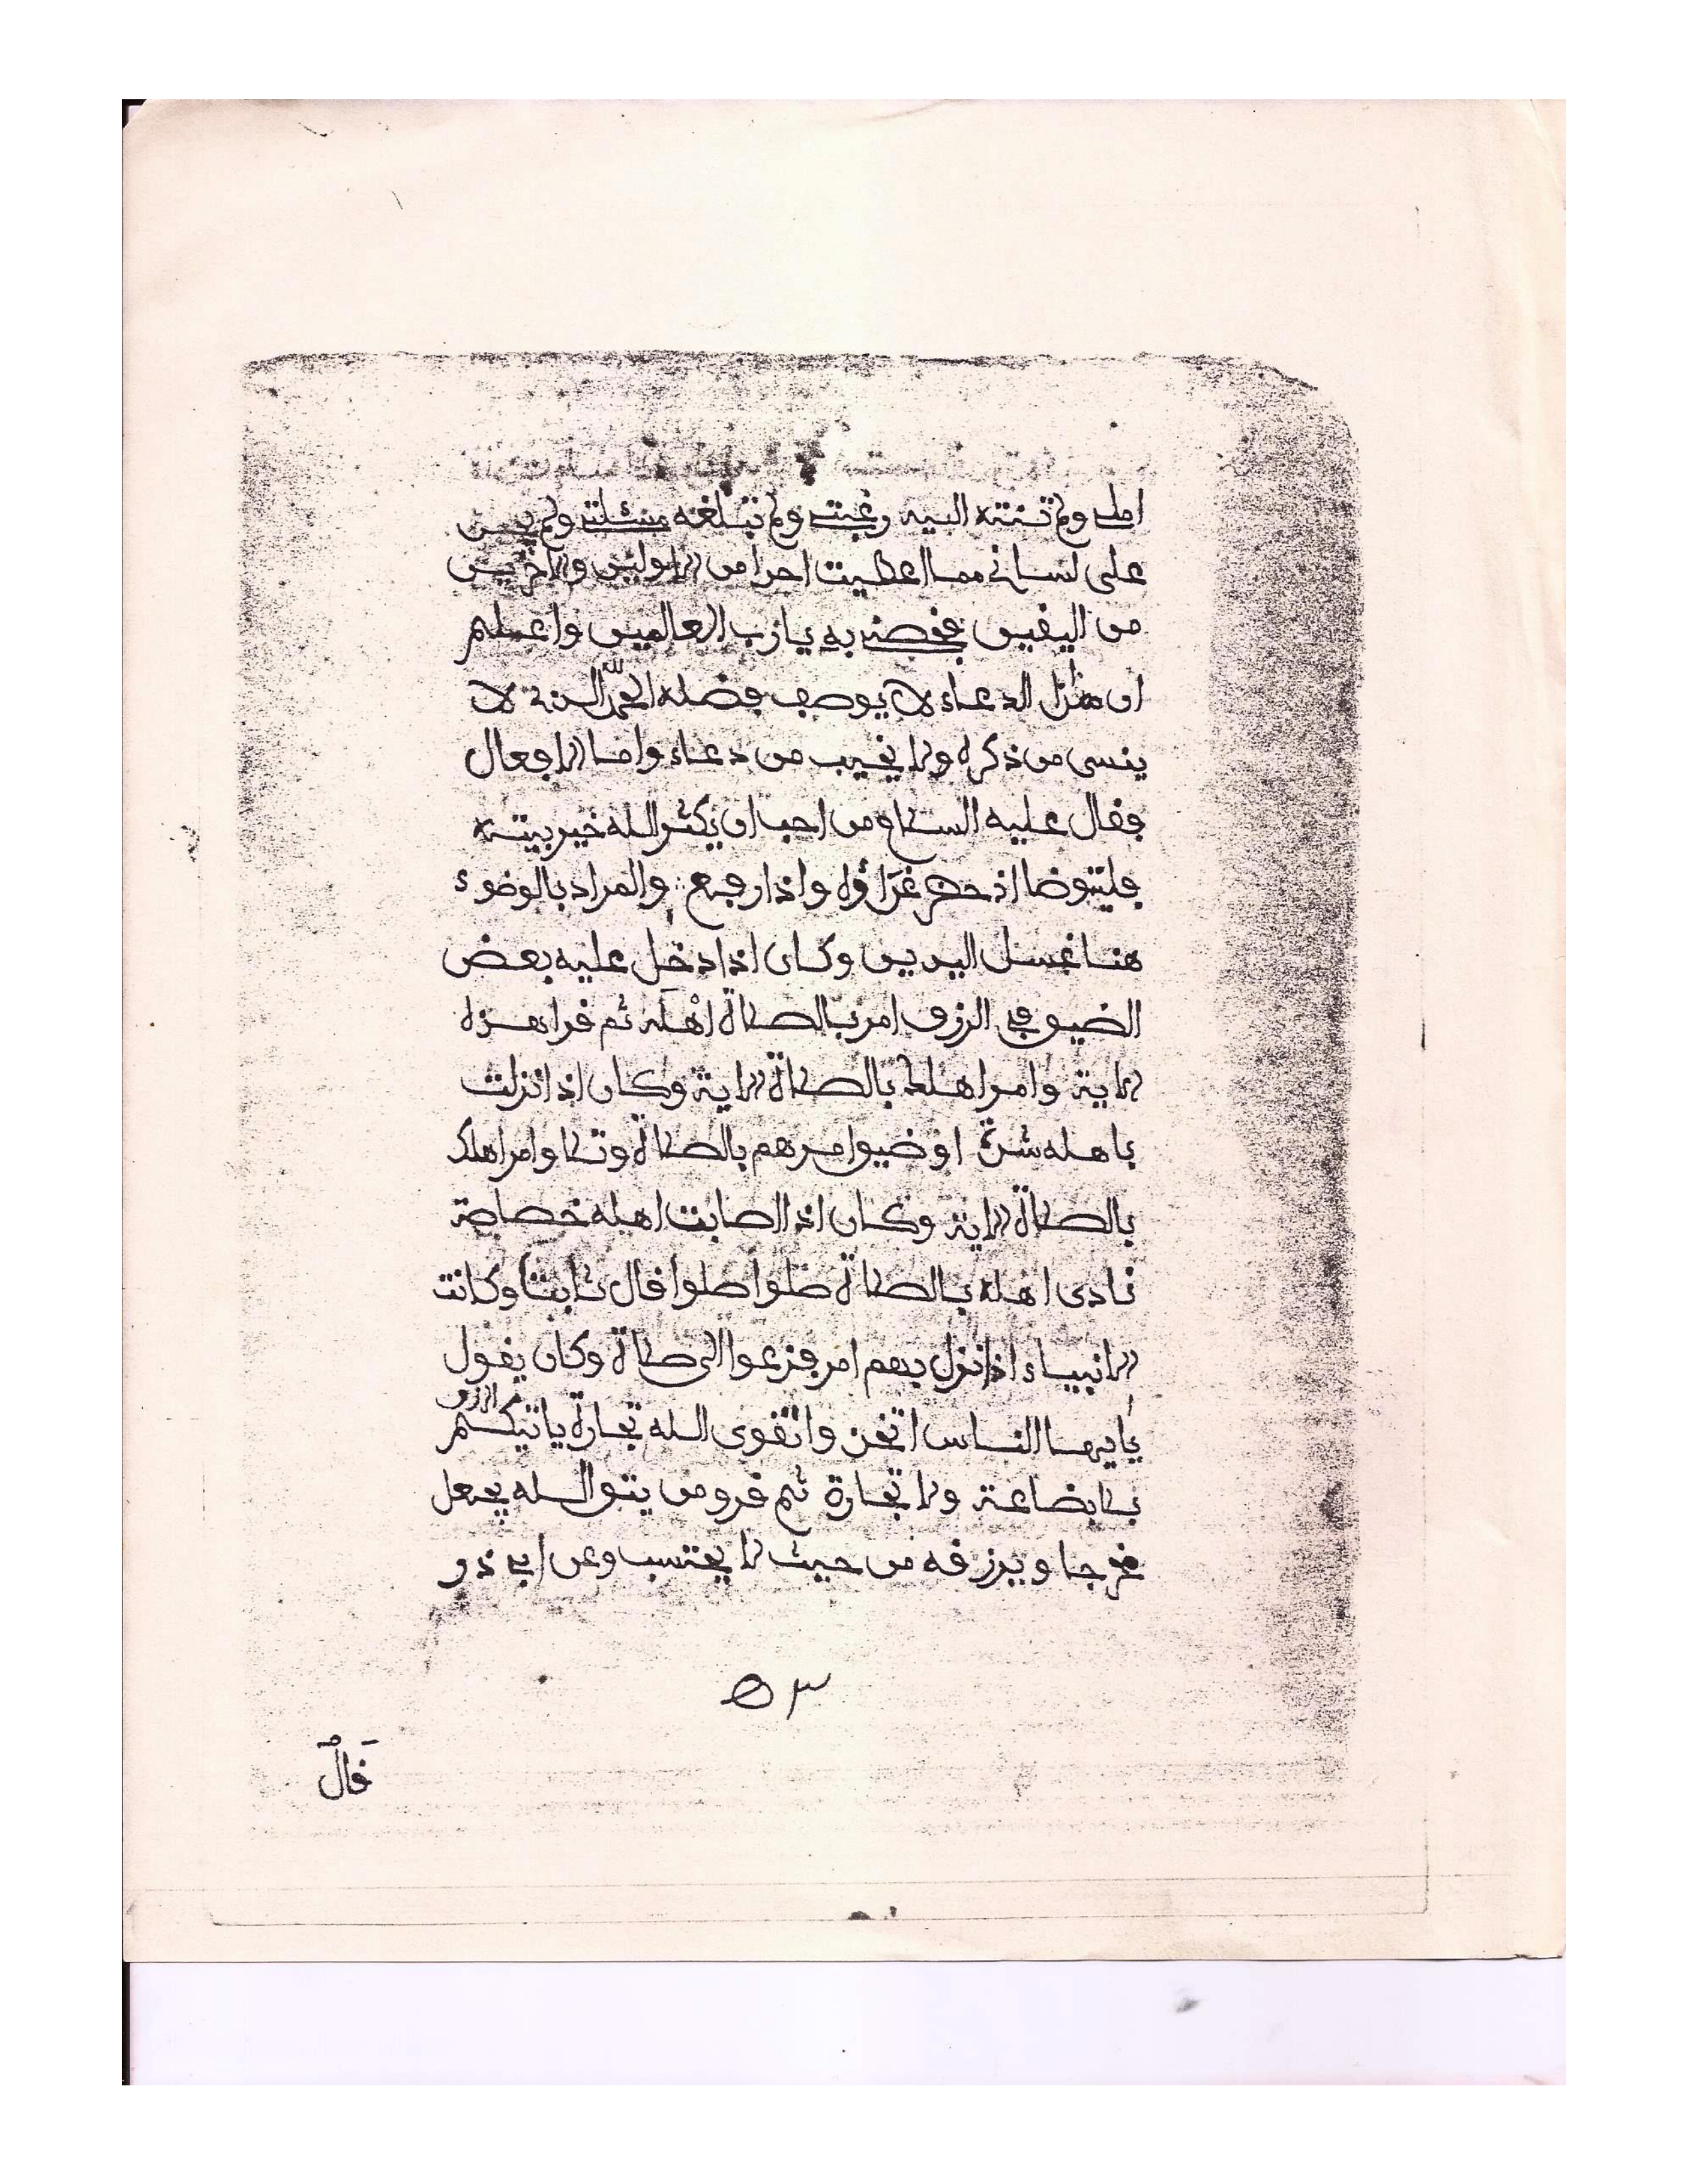 املي ولم تنته اليه رغبتي ولم تبلغه مسئلتي ولم يجر
على لساني مما اعطيت احدا من الاولين والاخرين
من اليقين فخصني به يارب العالمين واعلم
ان هذا الدعاء لا يوصف فضله الحمد لله الذي لا
ينسى من ذكره ولا يخيب من دعاه واما الافعال
فقال عليه السلام من احب ان يكثر الله خير بيته
فليتوضا اذ حضر غداؤه واذا رفع والمراد بالوضوء
هنا غسل اليدين وكان اذا دخل عليه بعض
الضيق في الرزق امر بالصلاة اهله ثم قرا هذه
الاية وامر اهلك بالصلاة الاية وكان اذا نزلت
باهله شدة او ضيق امرهم بالصلاة وتلا وامر اهلك
بالصلاة الاية وكان اذا اصابت اهله خصاصة
نادى اهله بالصلاة صلوا صلوا قال ثابت وكانت
الانبياء اذا نزل بهم امر فزعوا الى صلاة وكان يقول
يايها الناس اتخذوا تقوى الله تجارة ياتيكم الرزق
بلا بضاعة ولا تجارة ثم قرا ومن يتق الله يجعل
مخرجا ويرزقه من حيث لا يحتسب وعن ابي ذر
٥٣
قال